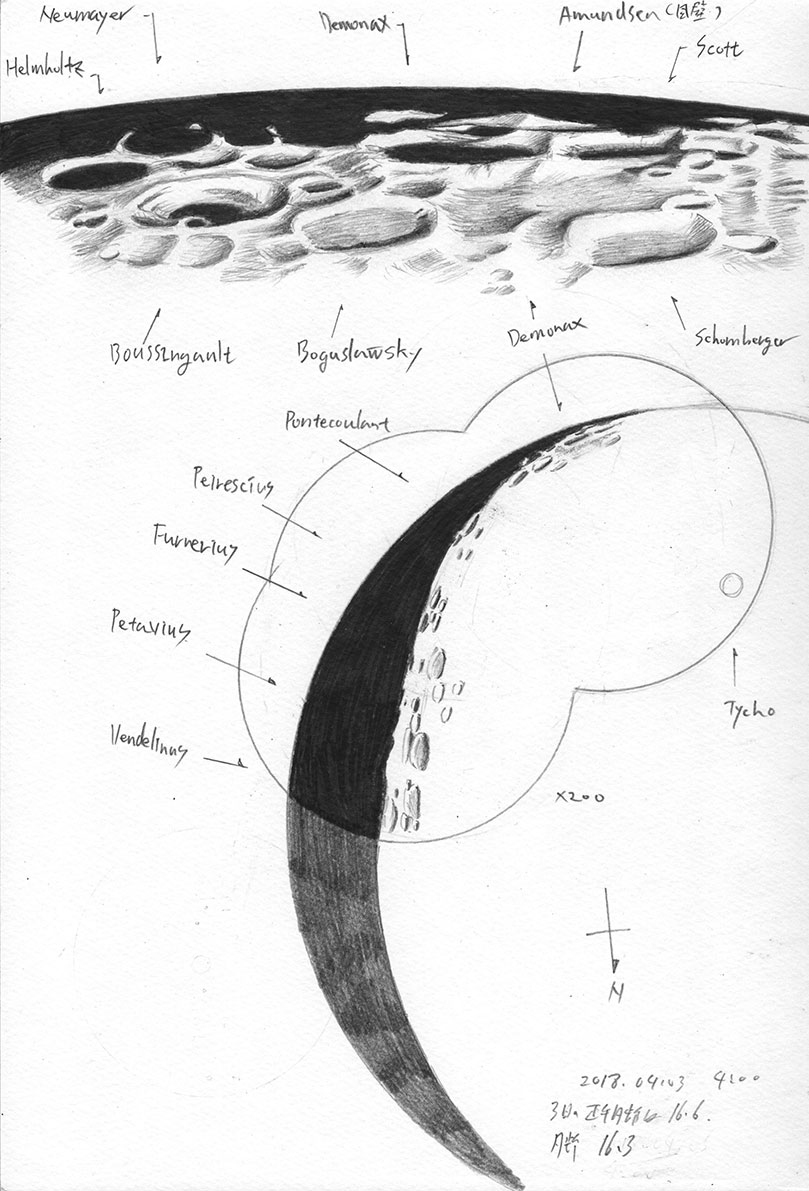 Neumayer
Demonax
Amundsen (西壁)
Helmholtz
Scott
Boussingault
Boguslawsky
Demonax
Schomberger
Pontecoulant
Peirescius
Furnerius
Petavius
Vendelinus
Tycho
×200
N
2018.04.03 4:00
3日の正午月齢は 16.6.
月齢 16.3